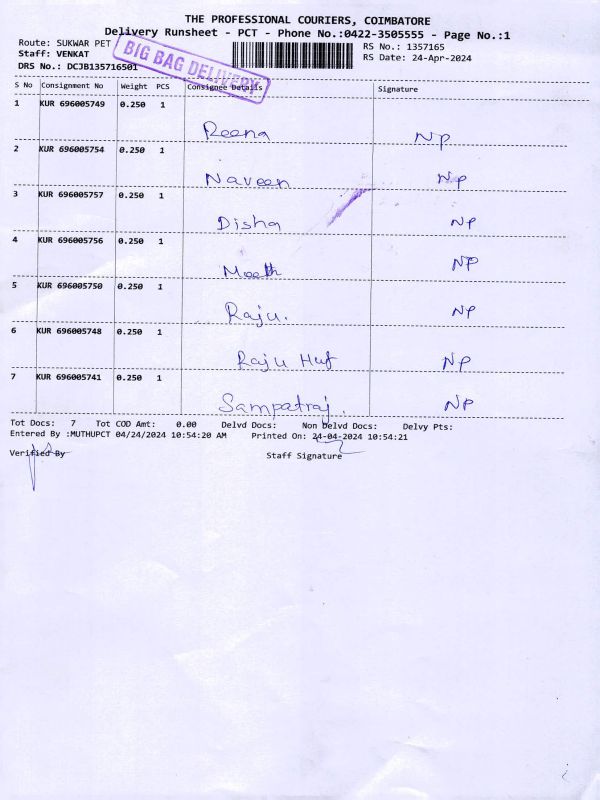 THE PROFESSIONAL COURIERS, COIMBATORE
Delivery Runsheet - PCT - Phone No.:0422-3505555 - Page No.:1
Route: SUKWAR PET
Staff: VENKAT
DRS No.: DCJB135716501
BIG BAG DELIVERY
RS No.: 1357165
RS Date: 24-Apr-2024
S No Consignment No Weight PCS Consignee Details Signature
1 KUR 696005749 0.250 1
Reena NP
2 KUR 696005754 0.250 1
Naveen NP
3 KUR 696005757 0.250 1
Disha NP
4 KUR 696005756 0.250 1
NP
5 KUR 696005750 0.250 1
Raju. NP
6 KUR 696005748 0.250 1
Raju Huf NP
7 KUR 696005741 0.250 1
Sampatraj. NP
Tot Docs: 7 Tot COD Amt: 0.00 Delvd Docs: Non Delvd Docs: Delvy Pts:
Entered By :MUTHUPCT 04/24/2024 10:54:20 AM Printed On: 24-04-2024 10:54:21
Verified By Staff Signature